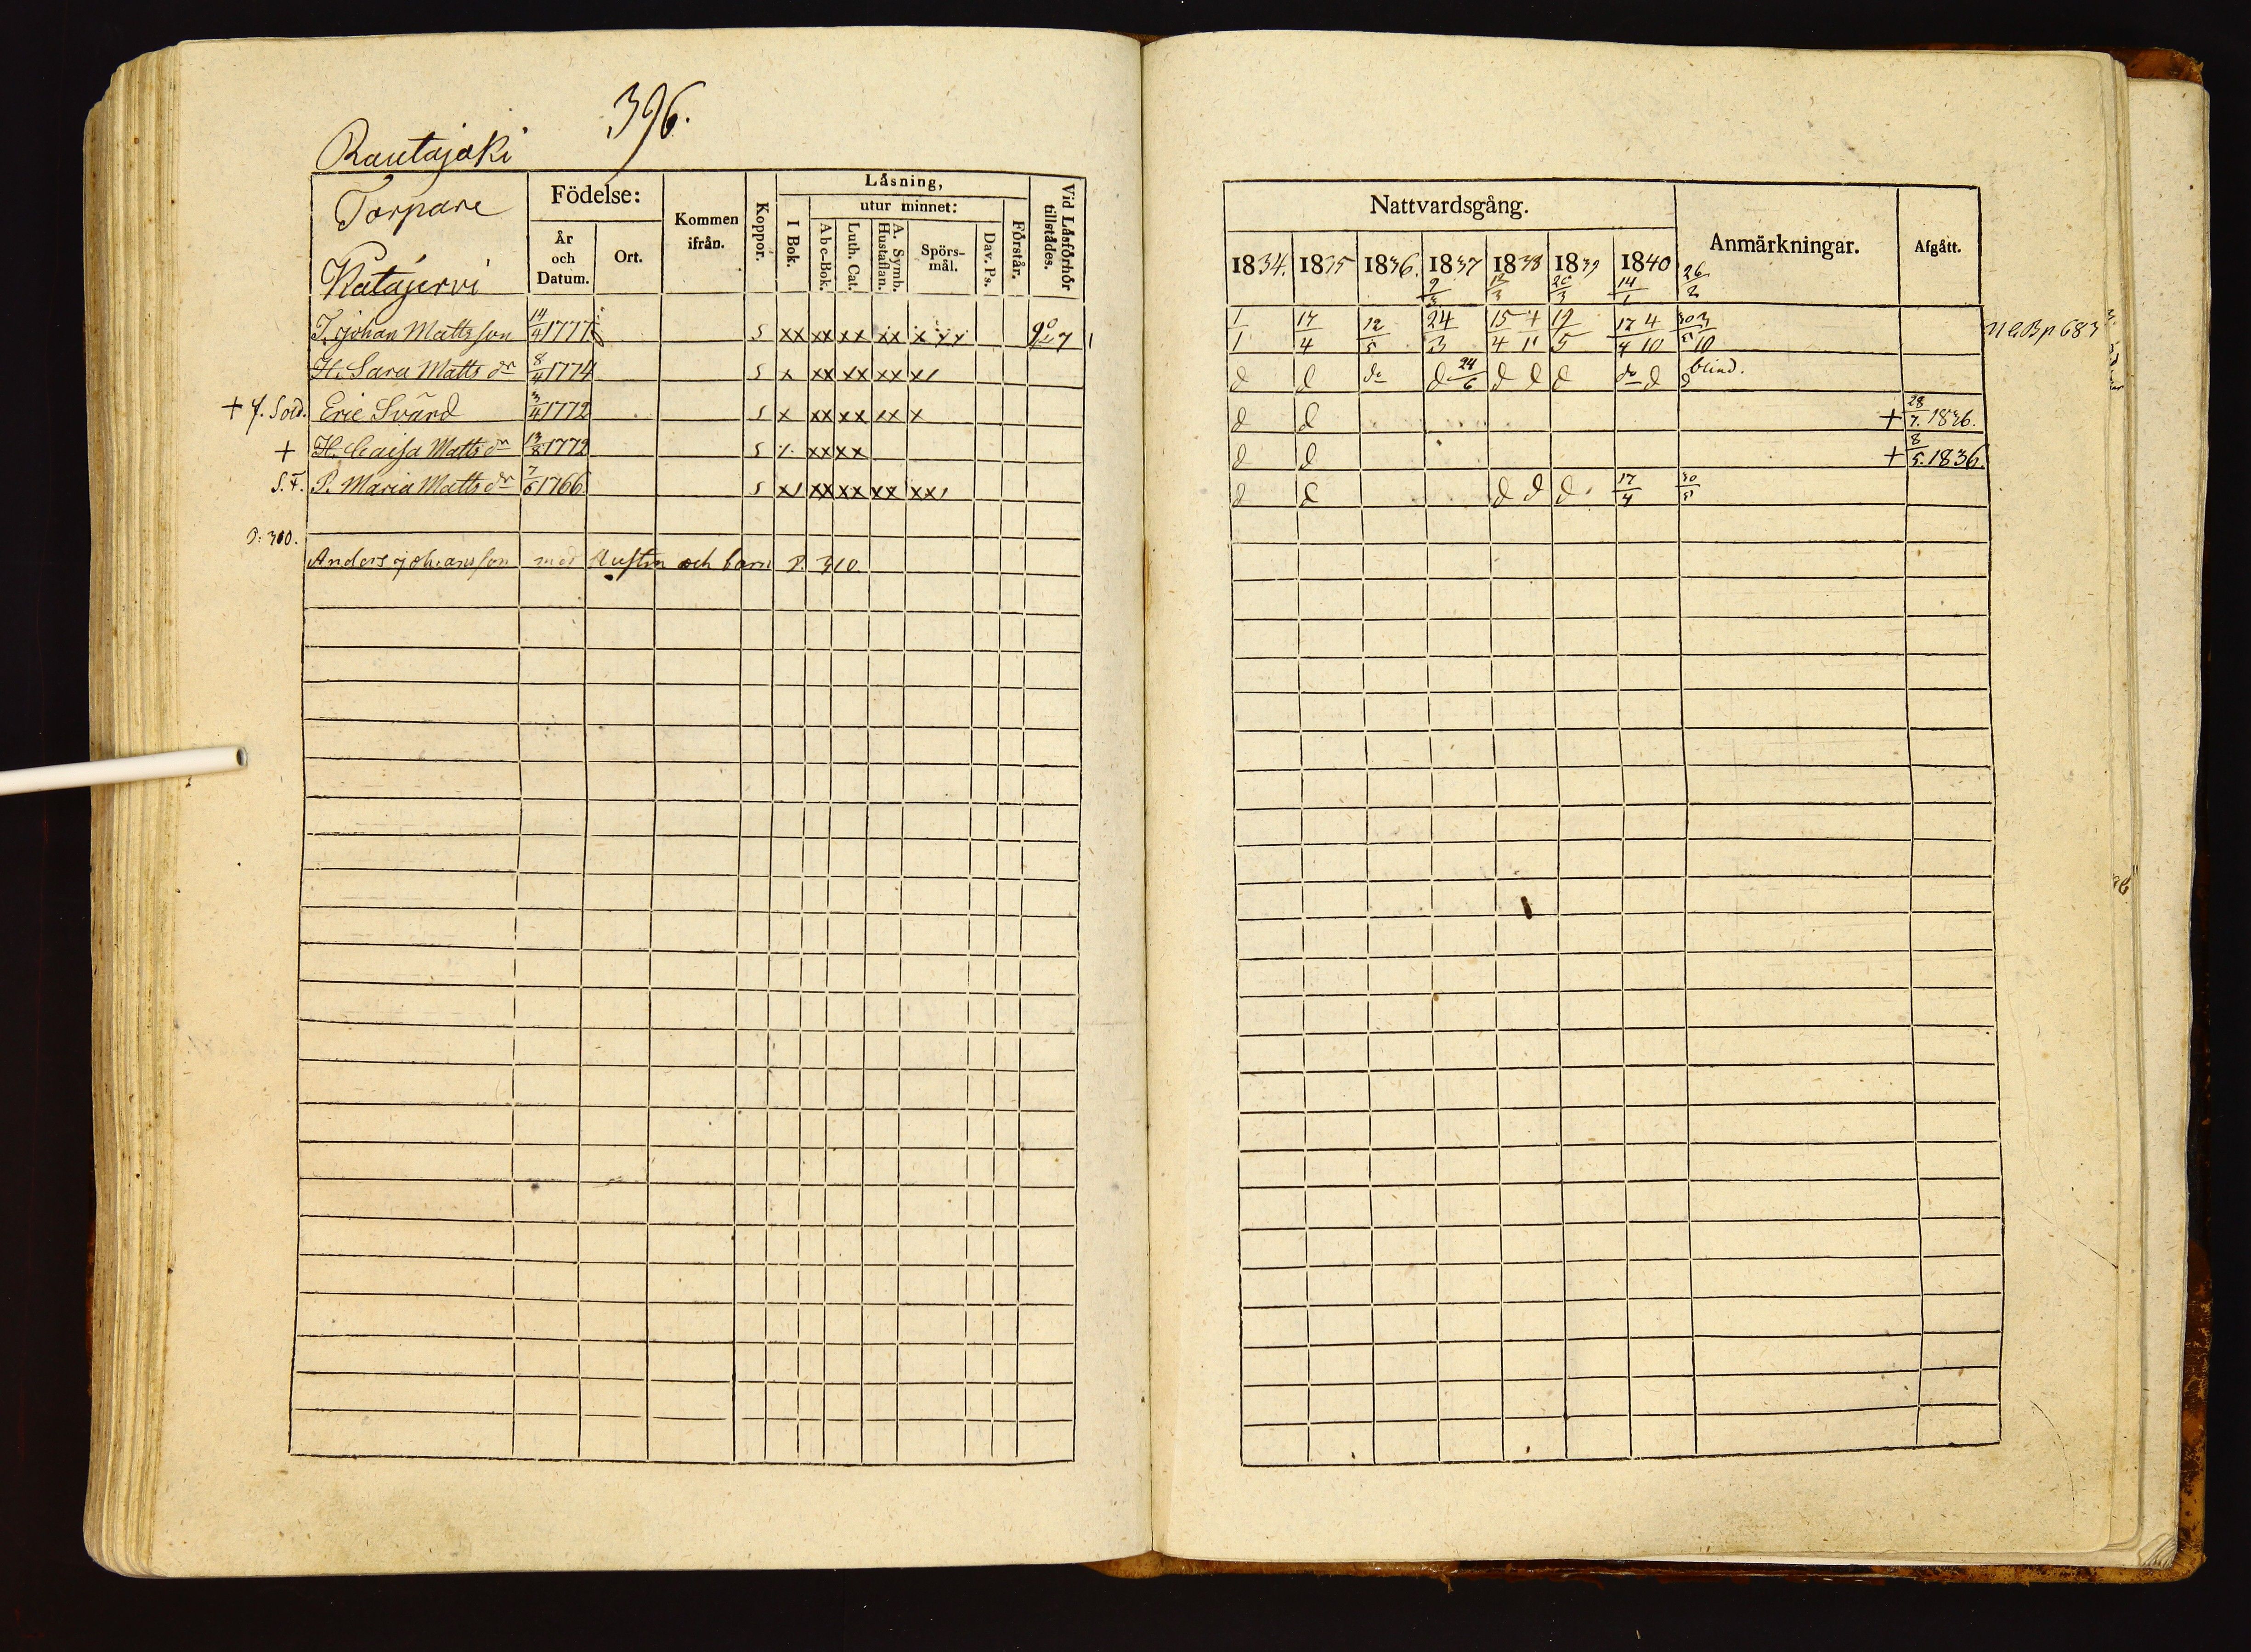 396.
Rautajoki
Torpare
Katajervi
Födelse:
År och Datum.
Ort.
Kommen ifrån.
Koppor.
Läsning,
I Bok.
utur minnet:
Abc-Bok.
Luth. Cat.
A. Symb. Hustaflan.
Spörsmål.
Dav. Ps.
Förstår.
Vid Läsförhör tillstädes.
T. Johan Mattsson 14/4 1777 s xx xx xx xx x
H. Sara Matts dr 8/4 1774 s x xx xx xx x/
+ f. Sold. Eric Svärd 3/4 1772 s x xx xx xx x
+ H. Caisa Matts dr 13/8 1772 s xx xx
S. F. P. Maria Matts dr 7/6 1766 s x/ xx xx xx xx/
P. 310.
Anders Johansson med Hustru och barn P. 310
Nattvardsgång.
Anmärkningar.
Afgått.
1834. 1835 1836. 1837 1838 1839 1840
9/3 12/3 26/3 14/1 26/2
1/1 17/4 12/5 24/3 15/4 4/11 19/5 17/4 4/10 30/5 3/10 N C B p 683
d d do d 24/6 d d d do d d blind.
d d + 28/7. 1836.
d d + 8/5. 1836.
d d d d d 17/4 30/5